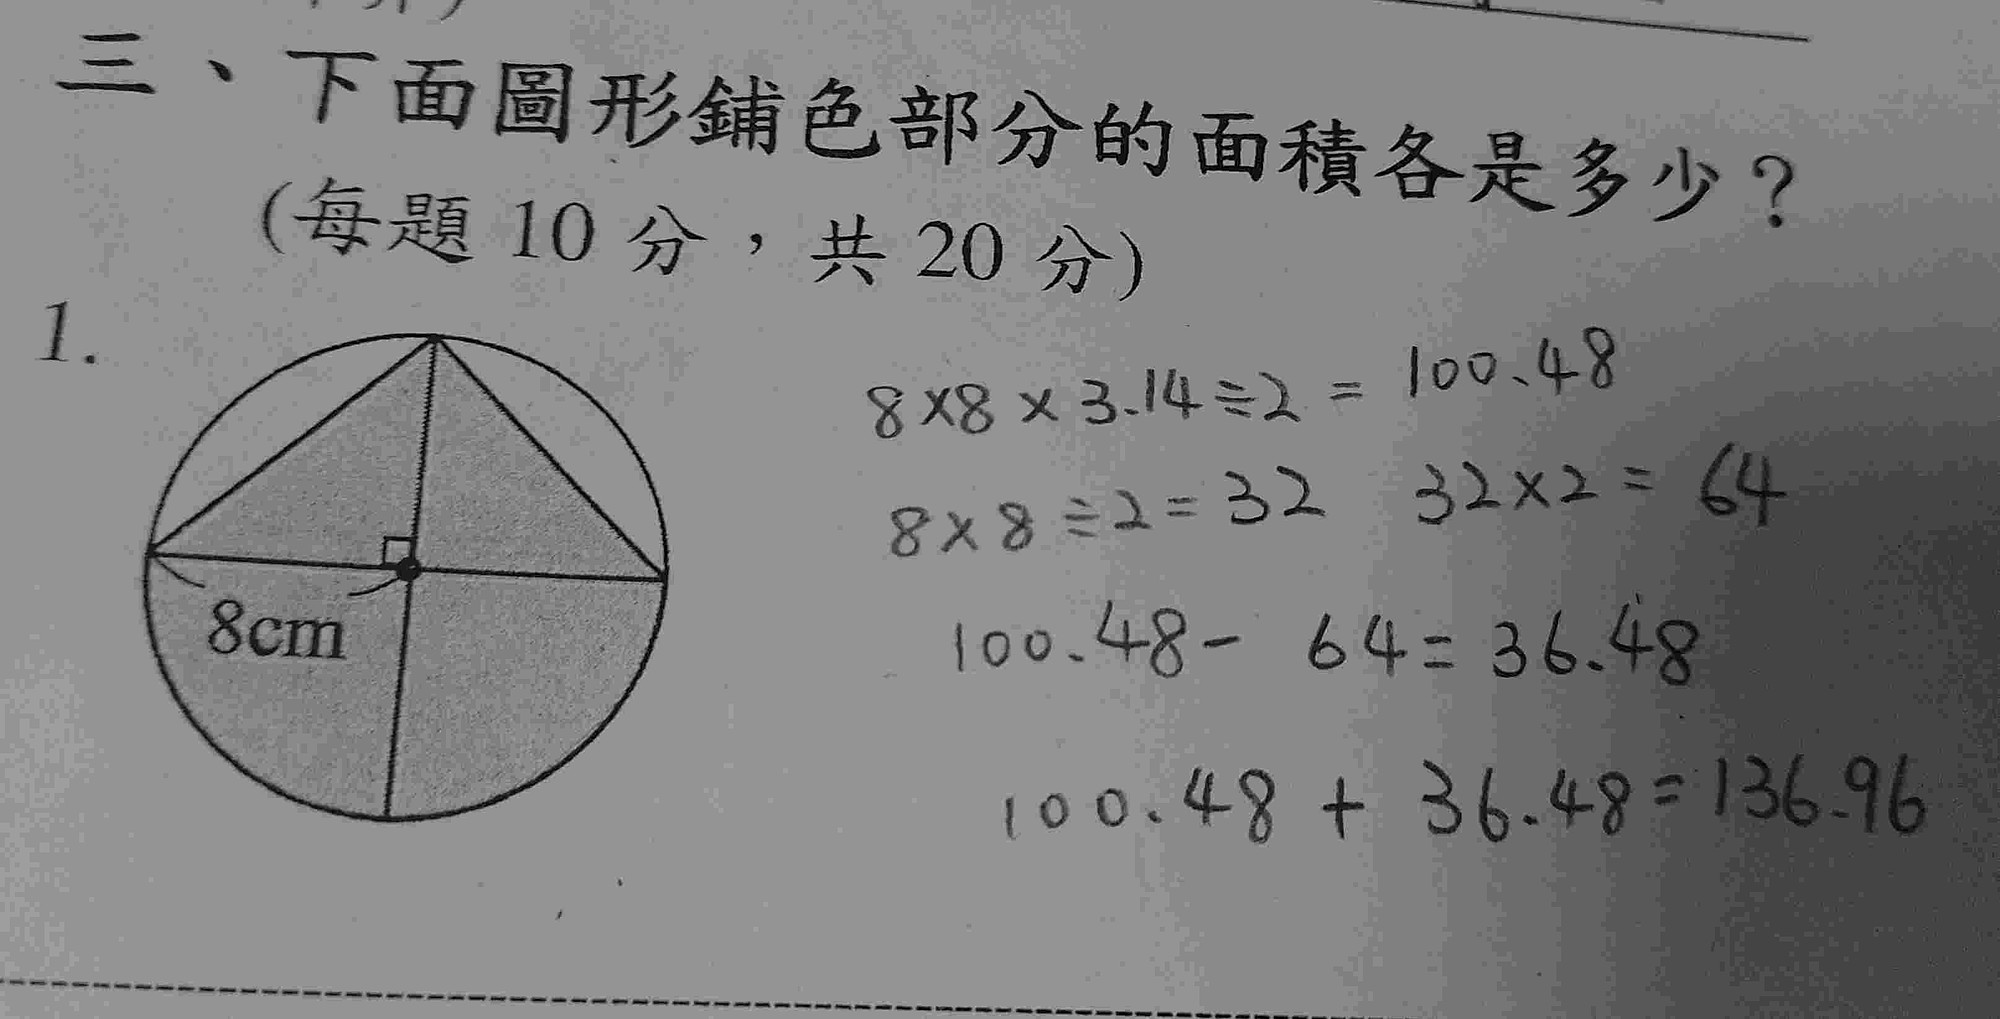 三、下面圖形鋪色部分的面積各是多少?
(每題 10 分,共 20 分)
1.
8cm
8×8×3.14÷2 = 100.48
8×8÷2=32 32×2= 64
100.48- 64=36.48
100.48 + 36.48=136.96